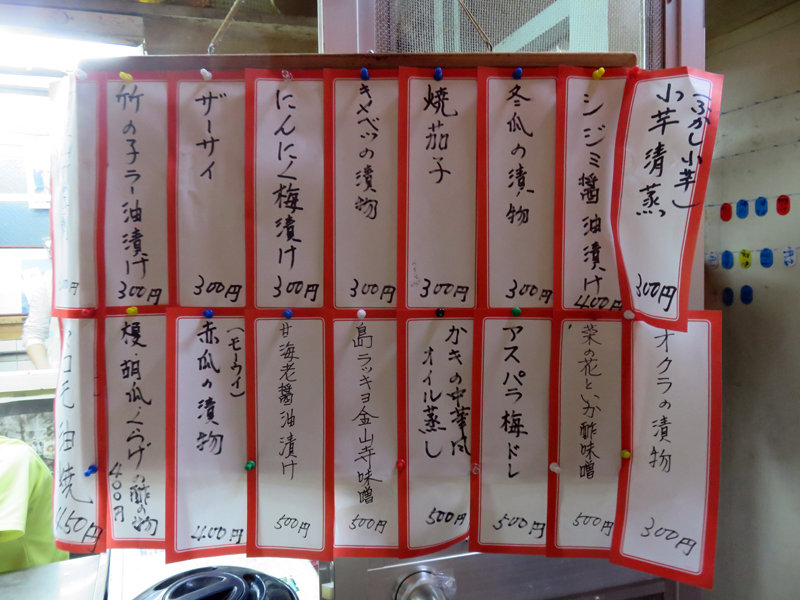 (ふかし小芋)
小芋清蒸
300円
シジミ醤油漬け
400円
冬瓜の漬物
300円
焼茄子
300円
キャベツの漬物
300円
にんにく梅漬け
300円
ザーサイ
300円
竹の子ラー油漬け
300円
オクラの漬物
300円
菜の花といか酢味噌
500円
アスパラ梅ドレ
500円
かきの中華風
オイル蒸し
500円
島ラッキョ金山寺味噌
500円
甘海老醤油漬け
500円
(モーウイ)
赤瓜の漬物
400円
胡瓜・くらげ酢の物
400円
油焼
450円